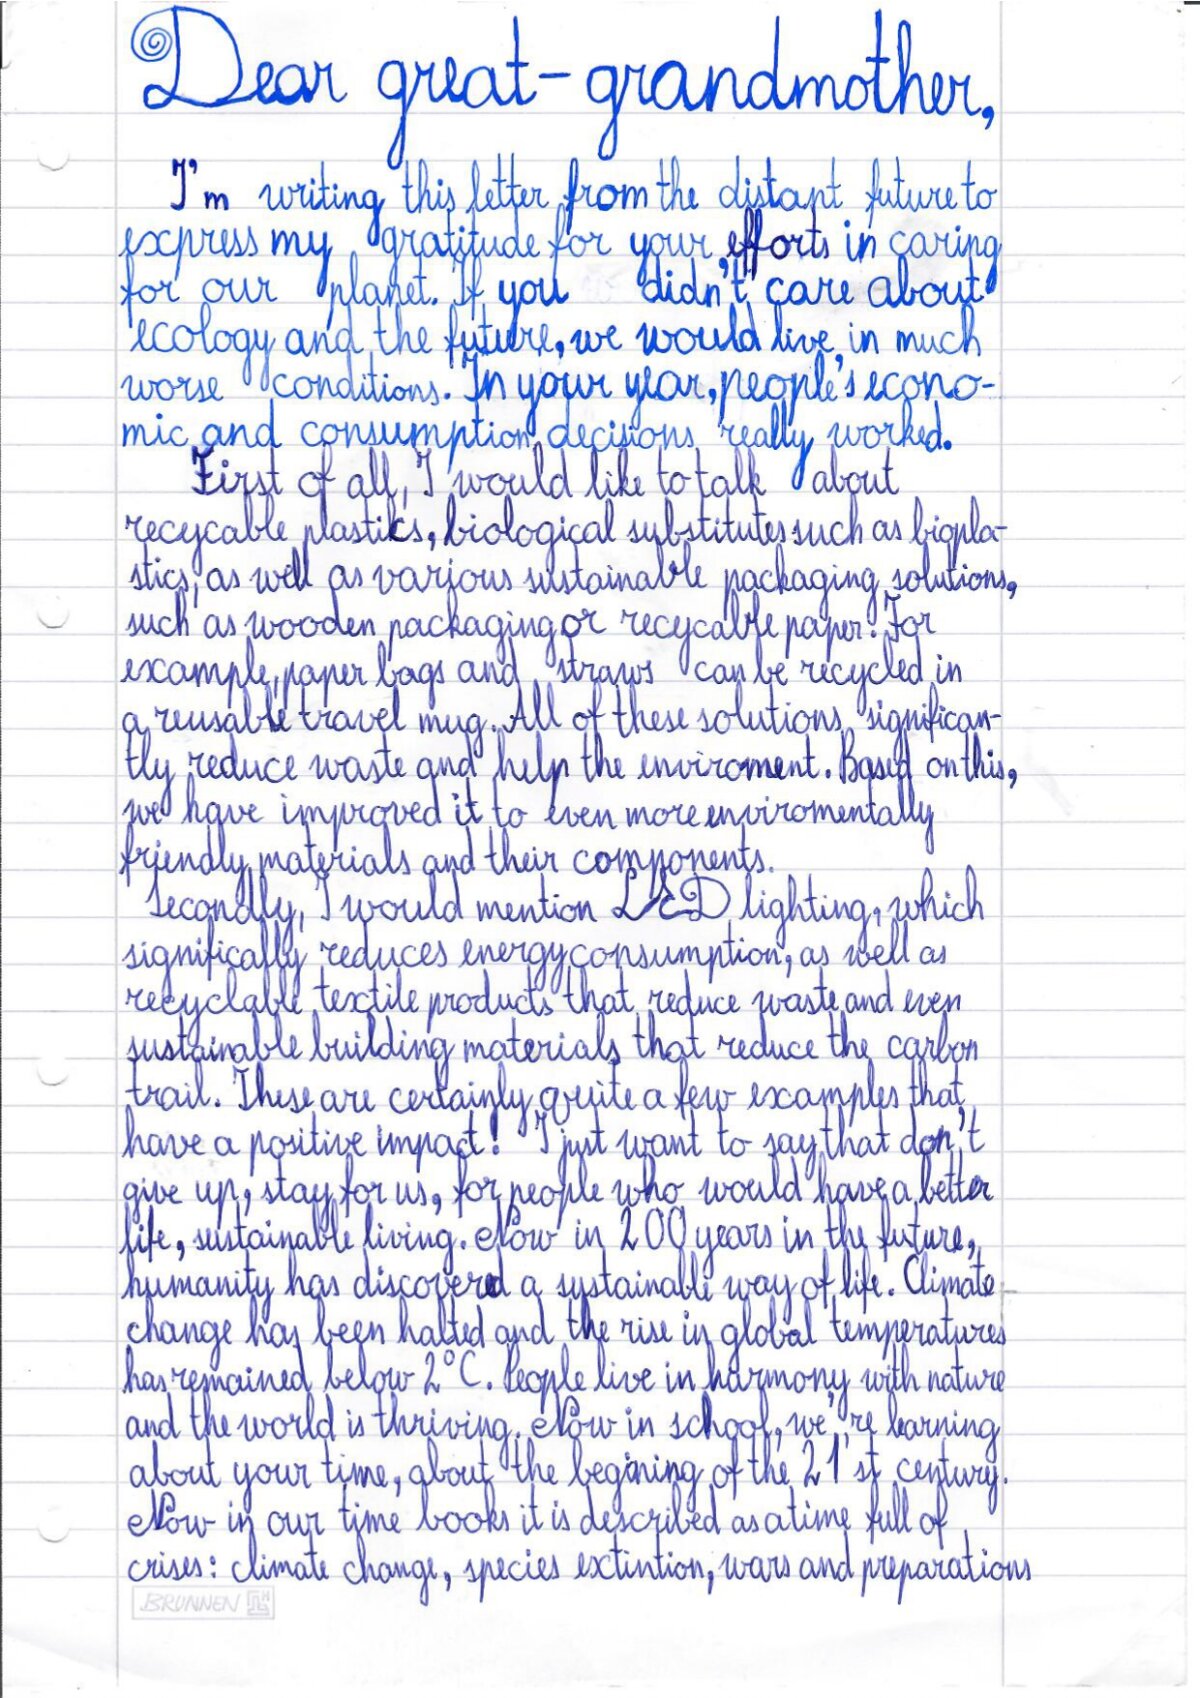 Dear great-grandmother,
I'm writing this letter from the distant future to
express my gratitude for your efforts in caring
for our planet. If you didn't care about
ecology and the future, we would live in much
worse conditions. In your year, people's econo-
mic and consumption decisions really worked.
First of all, I would like to talk about
recycable plastics, biological substitutes such as biopla-
stics, as well as various sustainable packaging solutions,
such as wooden packaging or recycable paper. For
example, paper bags and straws can be recycled in
a reusable travel mug. All of these solutions significan-
tly reduce waste and help the enviroment. Based on this,
we have improved it to even more enviromentally
friendly materials and their components.
Secondly, I would mention LED lighting, which
significally reduces energy consumption, as well as
recyclable textile products that reduce waste and even
sustainable building materials that reduce the carbon
trail. These are certainly quite a few examples that
have a positive impact! I just want to say that don't
give up, stay for us, for people who would have a better
life, sustainable living. Now in 200 years in the future,
humanity has discovered a sustainable way of life. Climate
change has been halted and the rise in global temperatures
has remained below 2°C. People live in harmony with nature
and the world is thriving. Now in school, we're learning
about your time, about the begining of the 21'st century.
Now in our time books it is described as a time full of
crises: climate change, species extintion, wars and preparations
BRUNNEN